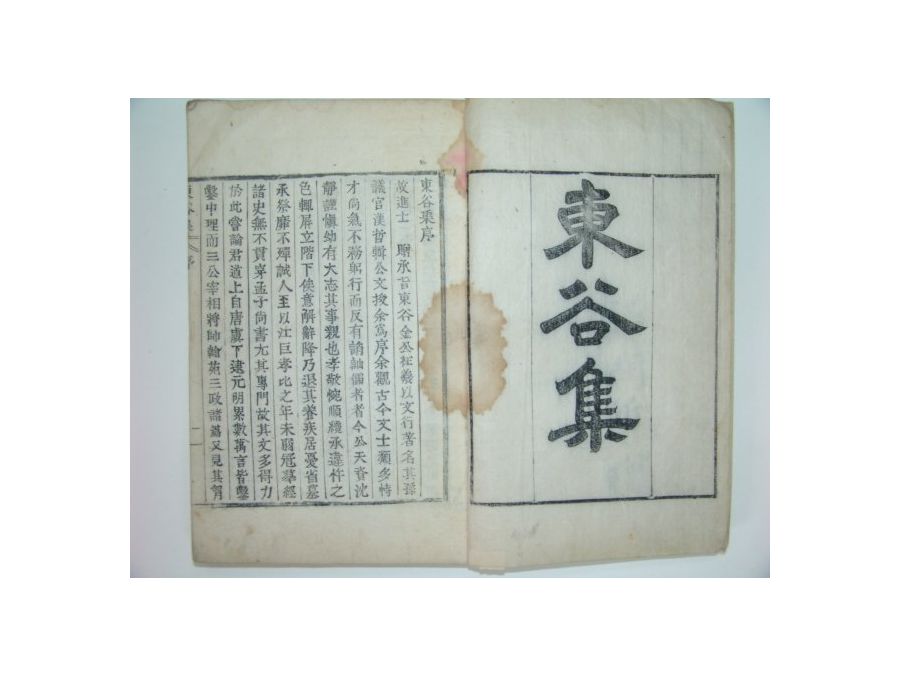 東谷集
東谷集序
故進士 贈承旨東谷金公 以文行著名其孫
議官漢哲輯公文 余爲序余觀古今文士類多恃
才尙氣不務躬行而反有 者今公天資沈
靜 愼幼有大志其事親也孝敬婉順 承違忤之
色輒屛立階下俟意解辭降乃退其養疾居憂省墓
承祭靡不殫誠人至以江巨孝比之年未弱冠 經
諸史無不貫穿孟子尙書尤其專門故其文多得力
於此嘗論君道上自唐虞下逮元明累數萬言皆鑿
鑿中理而三公宰相將帥翰苑三政諸 又見其
東谷集 序 一